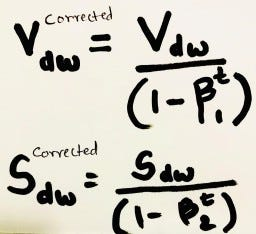 V_dw^Corrected = V_dw / (1 - β_1^t)
S_dw^Corrected = S_dw / (1 - β_2^t)